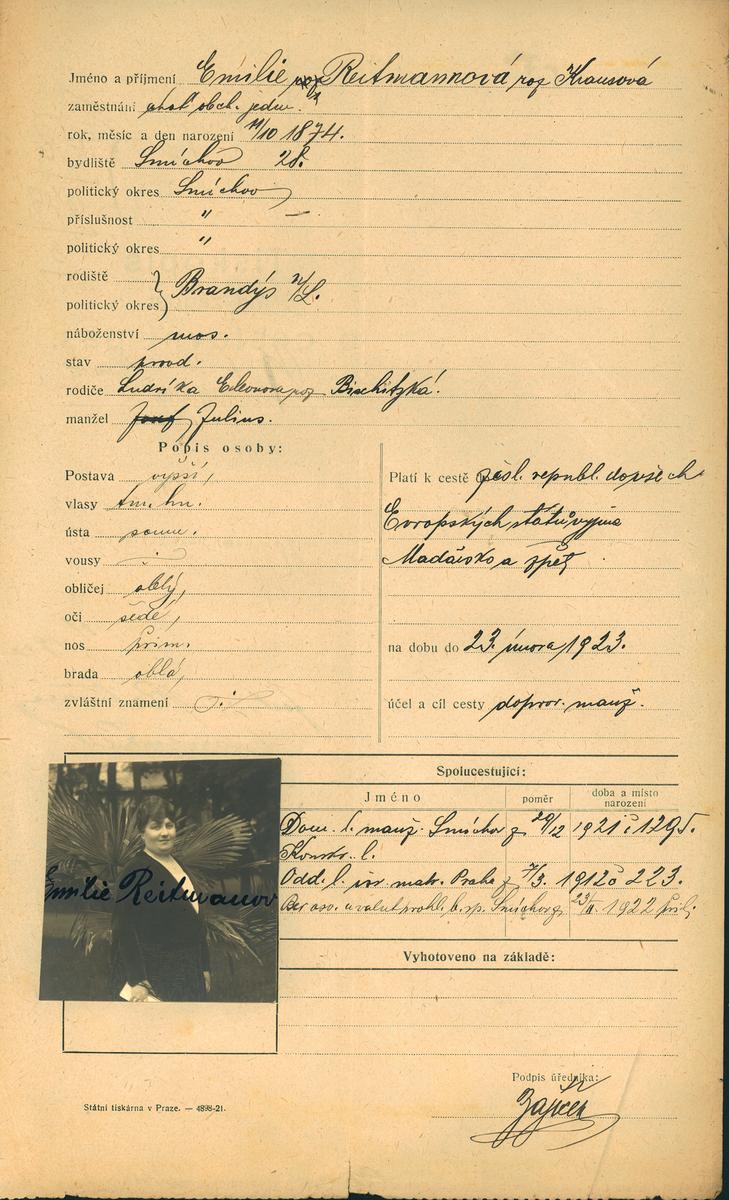 Jméno a příjmení Emilie Reitmannová roz Krausová
zaměstnání choť obch. jedn.
rok, měsíc a den narození 11/10 1874.
bydliště Smíchov 28.
politický okres Smíchov
příslušnost "
politický okres "
rodiště
Brandýs n/L.
politický okres
náboženství mos.
stav provd.
rodiče Ludvík a Eleonora roz Bischitzká.
manžel Josef Julius.
Popis osoby:
Postava vyšší,
vlasy tm. hn.
ústa soum.
vousy
obličej oblý,
oči šedé,
nos přim.
brada oblá,
zvláštní znamení
Platí k cestě čsl. republ. do všech
Evropských států vyjma
Maďarsko a zpět
na dobu do 23. února 1923.
účel a cíl cesty doprov. manž.
Emilie Reitmanov
Spolucestující:
Jméno poměr doba a místo narození
Dom. l. manž. Smíchov z 29/12 1921 č 1295.
Konskr. l.
Odd. l. isr. matr. Praha z 7/3. 1912 č 223.
Ber. osv. a valut. prohl. b. sp. Smíchov z 23/II. 1922 přil.
Vyhotoveno na základě:
Podpis úředníka:
Zajíček
Státní tiskárna v Praze. — 4898-21.